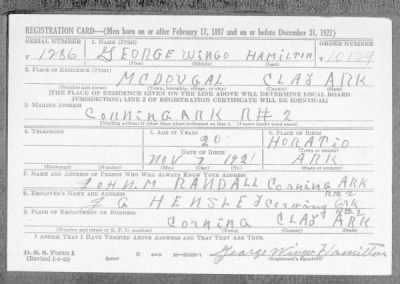 REGISTRATION CARD—(Men born on or after February 17, 1897 and on or before December 31, 1921)
SERIAL NUMBER 1. NAME (Print) ORDER NUMBER
T 1286 GEORGE WINGO HAMILTON T 10129
(First) (Middle) (Last)
2. PLACE OF RESIDENCE (Print)
MCDOUGAL CLAY ARK
(Number and street) (Town, township, village, or city) (County) (State)
[THE PLACE OF RESIDENCE GIVEN ON THE LINE ABOVE WILL DETERMINE LOCAL BOARD
JURISDICTION; LINE 2 OF REGISTRATION CERTIFICATE WILL BE IDENTICAL]
3. MAILING ADDRESS
Corning ARK R#2
[Mailing address if other than place indicated on line 2. If same insert word same]
4. TELEPHONE 5. AGE IN YEARS 6. PLACE OF BIRTH
20 HORATIO
DATE OF BIRTH (Town or county)
NOV 7 1921 ARK
(Exchange) (Number) (Mo.) (Day) (Yr.) (State or country)
7. NAME AND ADDRESS OF PERSON WHO WILL ALWAYS KNOW YOUR ADDRESS
JOHN. M RANDALL Corning ARK
8. EMPLOYER'S NAME AND ADDRESS R# 2
J G HENSLEY Corning Ark
9. PLACE OF EMPLOYMENT OR BUSINESS R# 2
Corning CLAY ARK
(Number and street or R. F. D. number) (Town) (County) (State)
I AFFIRM THAT I HAVE VERIFIED ABOVE ANSWERS AND THAT THEY ARE TRUE.
D. S. S. Form 1
(Revised 1-1-42) (over) George Wingo Hamilton
(Registrant's signature)